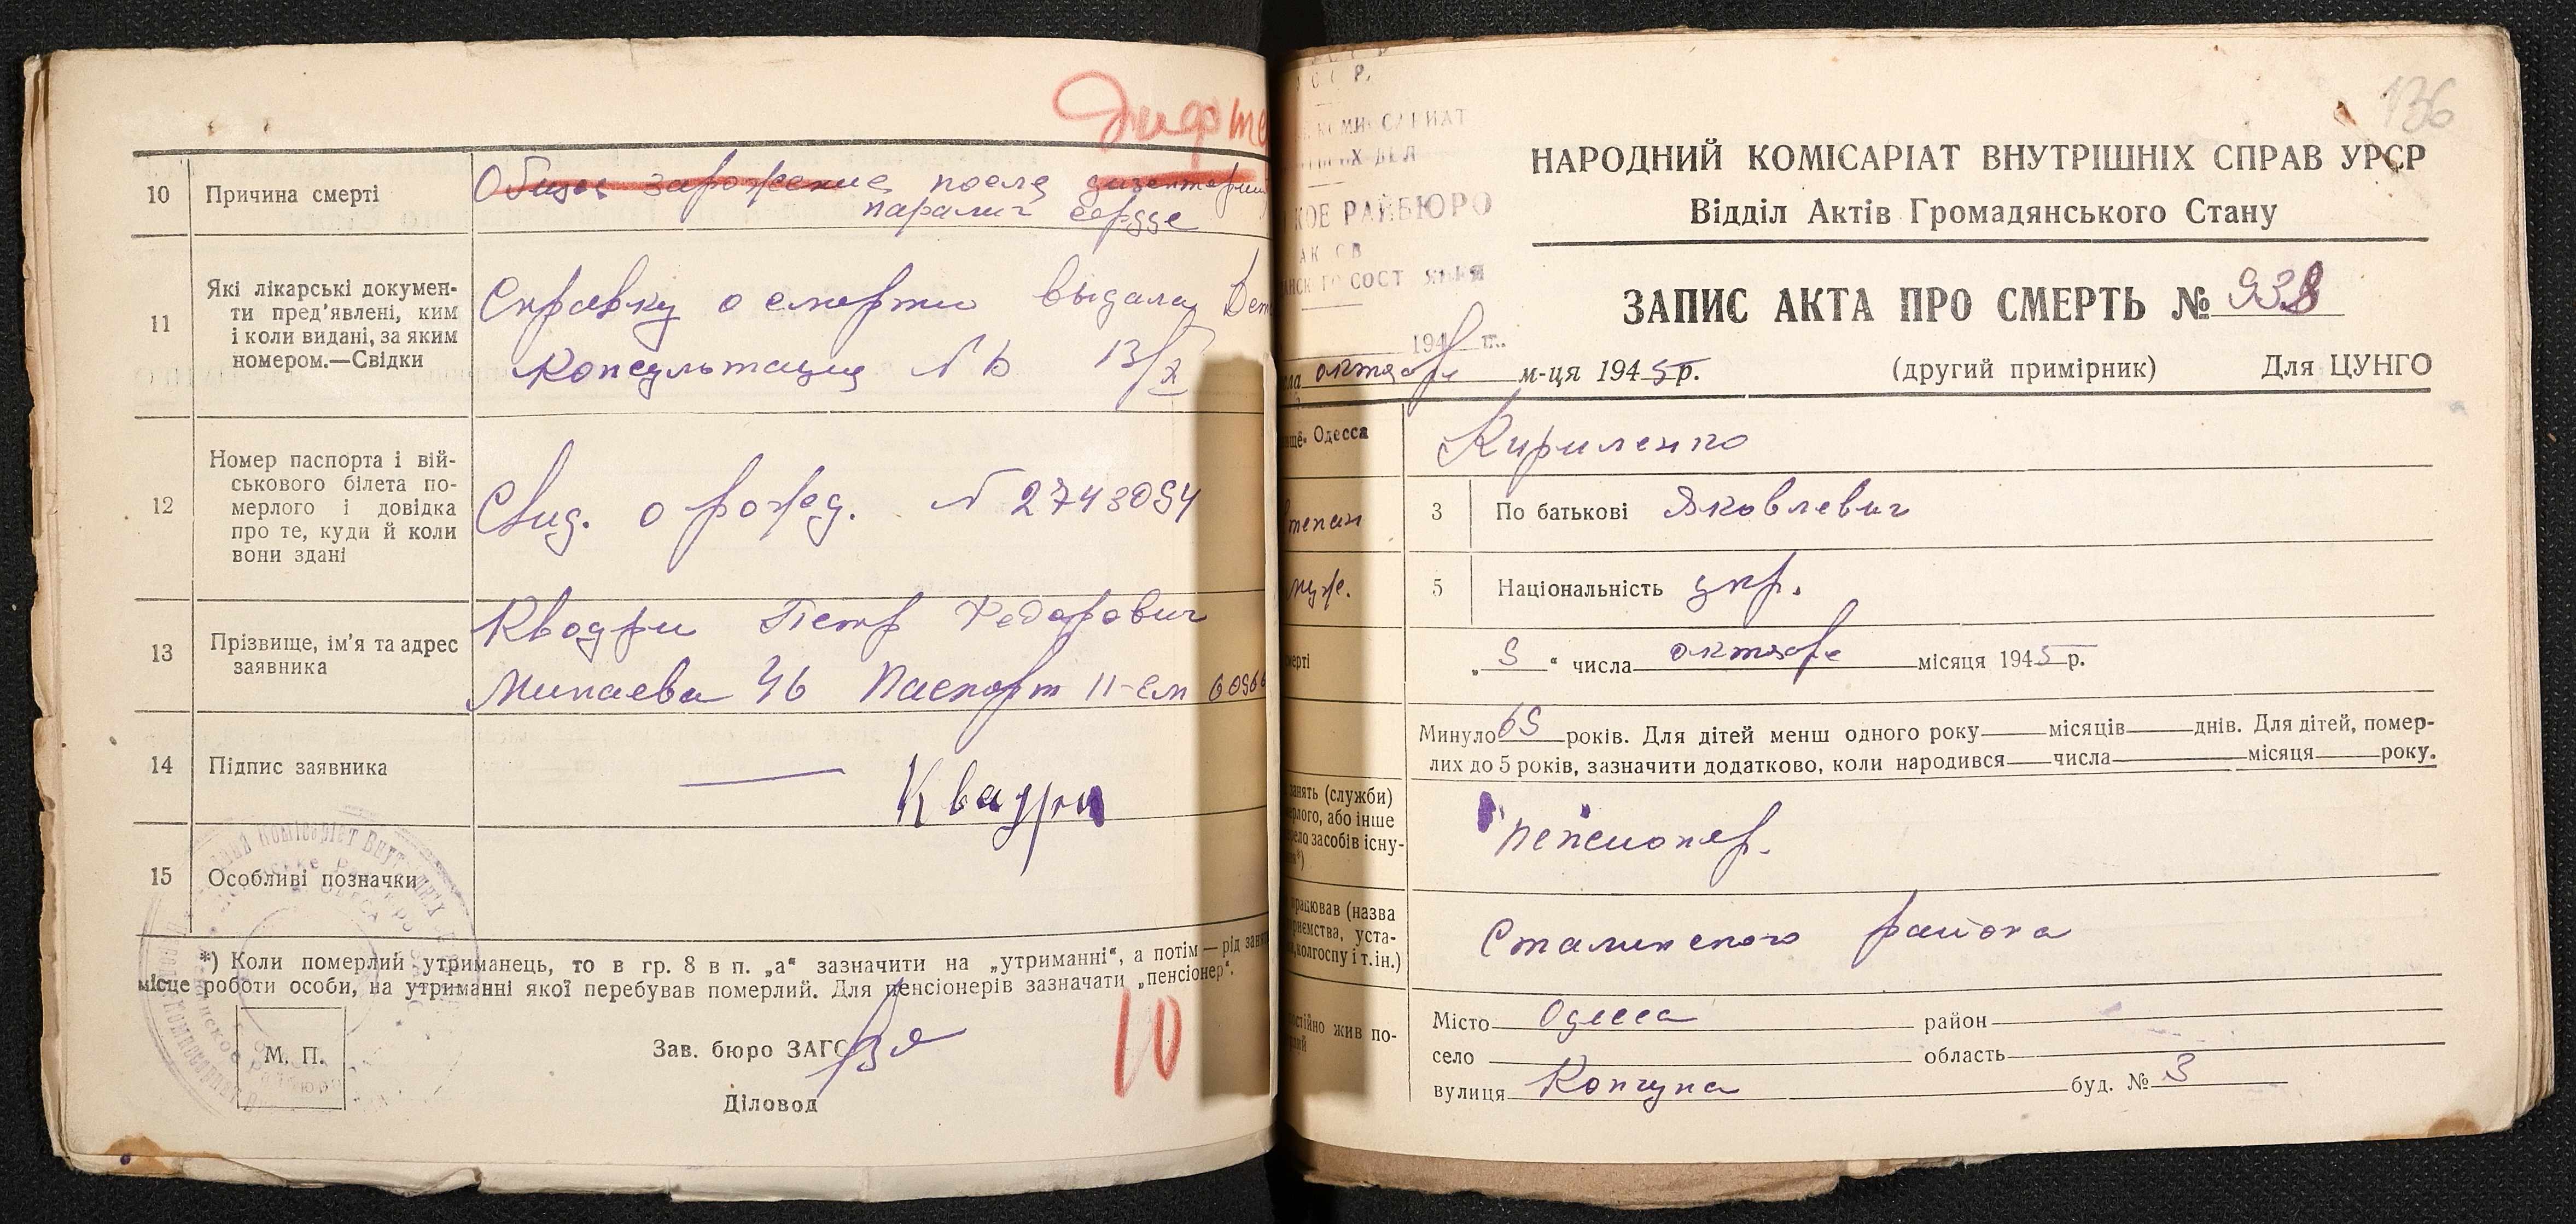 10 Причина смерти
Общее заражение после дизентерии
паралич сердце
11 Які лікарські докумен-
ти пред’явлені, ким
і коли видані, за яким
номером.—Свідки
Справку о смерти выдала Дет
Консультация № 6 13/X
12 Номер паспорта і вій-
ськового білета по-
мерлого і довідка
про те, куди й коли
вони здані
Свид. о рожд. № 2743054
13 Прізвище, ім’я та адрес
заявника
Квадри Петр Федорович
Минаева 46 Паспорт II-ем
14 Підпис заявника
Квадри
15 Особливі позначки
*) Коли померлий утриманець, то в гр. 8 в п. „а“ зазначити на „утриманні“, а потім — рід
місце роботи особи, на утриманні якої перебував померлий. Для пенсіонерів зазначати „пенсіонер“.
М. П.
Зав. бюро ЗАГС
10
Діловод
136
НАРОДНИЙ КОМІСАРІАТ ВНУТРІШНІХ СПРАВ УРСР
Відділ Актів Громадянського Стану
РАЙБЮРО
ЗАПИС АКТА ПРО СМЕРТЬ № 938
194 г.
октября м-ця 1945 р. (другий примірник) Для ЦУНГО
Одесса
Кириленко
3 По батькові Яковлевич
муж.
5 Національність укр.
„ 5 “ числа октября місяця 1945 р.
Минуло 65 років. Для дітей менш одного року місяців днів. Для дітей, помер-
лих до 5 років, зазначити додатково, коли народився числа місяця року.
занять (служби)
або інше
засобів існу-
пенсионер.
(назва
уста-
колгоспу і т. ін.)
Сталинского района
жив по-
Місто Одесса район
село область
вулиця буд. № 3